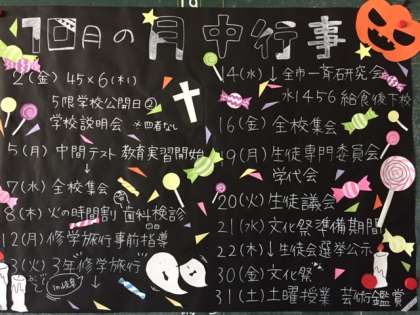 10月の月中行事
2(金) 45×6(木1)
5限学校公開日②
学校説明会 ※四者なし
5(月) 中間テスト 教育実習開始
↓
7(水) 全校集会
8(木) 火の時間割 歯科検診
12(月) 修学旅行事前指導
3(火) 3年修学旅行
14(水) ↓ 全市一斉石研究会
水1456 給食後下校
16(金) 全校集会
19(月) 生徒専門委員会
学代会
20(火) 生徒議会
21(水) 文化祭準備期間
22(木) ↓ 生徒会選挙公示
30(金) 文化祭
31(土) 土曜授業 芸術鑑賞